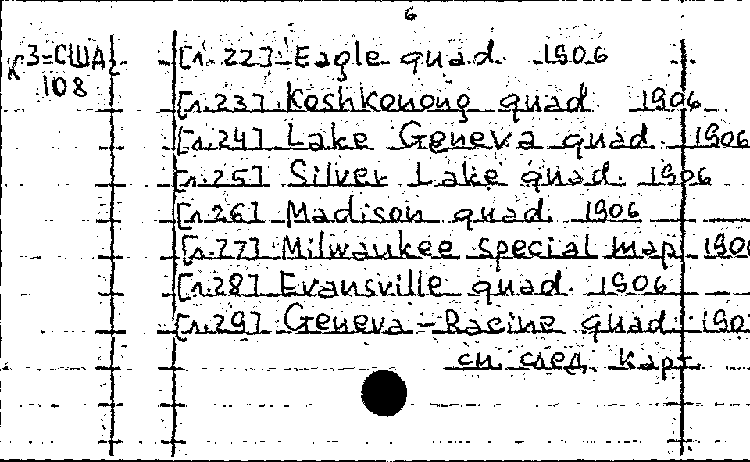 6
К 3=США [л.22] Eagle quad. 1906
108
[л.23] Koshkonong quad 1906
[л.24] Lake Geneva quad. 1906
[л.25] Silver Lake quad. 1906
[л.26] Madison quad. 1906
[л.27] Milwaukee special map 190
[л.28] Evansville quad. 1906
[л.29] Geneva-Racine quad. 190
см. след. карт.